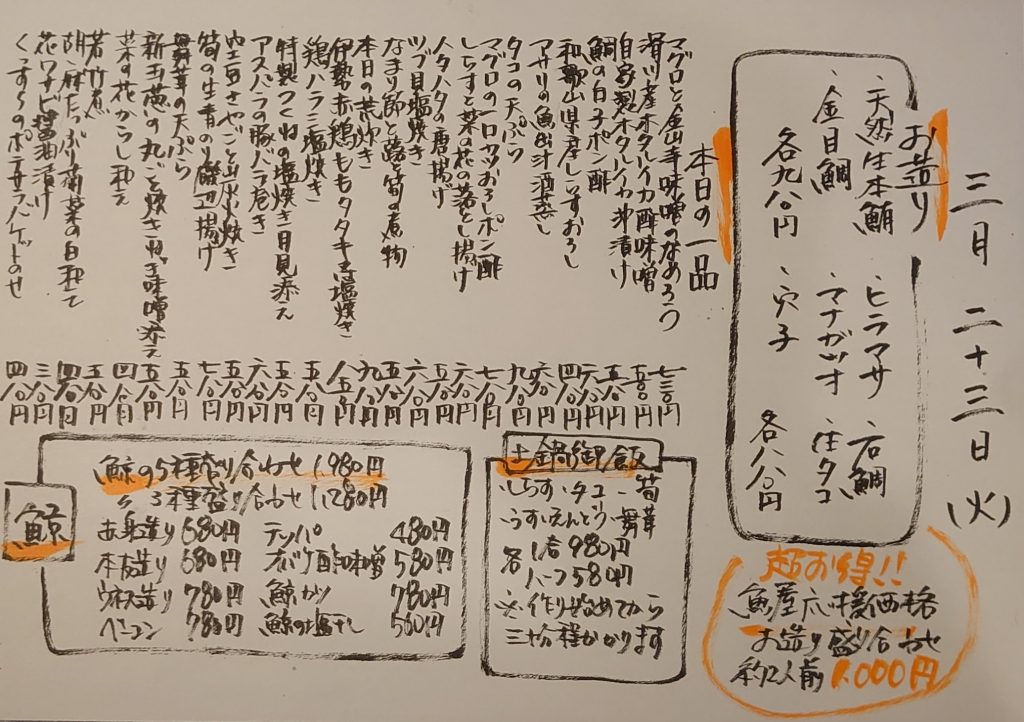 三月二十三日(火)
お造り
・天然生本鮪
・金目鯛
各九八〇円
・ヒラマサ ・石鯛
・マナガツオ ・生タコ
・穴子
各八八〇円
超お得!!
魚屋応援価格
お造り盛り合わせ
約2人前 1,000円
本日の一品
マグロと金山寺味噌のなめろう 七三〇円
滑川産ホタルイカ酢味噌 五八〇円
自家製ホタルイカ沖漬け 五八〇円
鯛の白子ポン酢 六八〇円
和歌山県産しらすおろし 四八〇円
アサリの魚出汁酒蒸し 六八〇円
タコの天ぷら 九八〇円
マグロの一口カツおろしポン酢 七八〇円
しらすと菜の花の落とし揚げ
人タハタの唐揚げ
ツブ貝塩焼き
なまり節と蕗と筍の煮物
本日の荒炊き
伊勢赤鶏ももタタキ又は塩焼き
鶏ハラミ塩焼き
特製つくねの塩焼き月見添え
アスパラの豚バラ巻き
筍の生青のり磯辺揚げ
舞茸の天ぷら
新玉葱の丸ごと焼きねぎ味噌添え
菜の花からし和え
若竹煮
胡麻たっぷり菊菜の白和え
花ワサビ醤油漬け 三八〇円
くっすーのポテサラバゲットのせ 四八〇円
土鍋御飯
・しらす ・タコ ・筍
・うすいえんどう ・舞茸
各 1合 980円
ハーフ 580円
※作り始めてから
三十分程かかります
鯨
鯨の5種盛り合わせ 1,980円
〃 3種盛り合わせ 1,280円
赤身造り 680円 テッパ 480円
本皮造り 680円 オバケ酢味噌 580円
ウネス造り 780円 鯨カツ 780円
ベーコン 780円 鯨の塩干し 580円